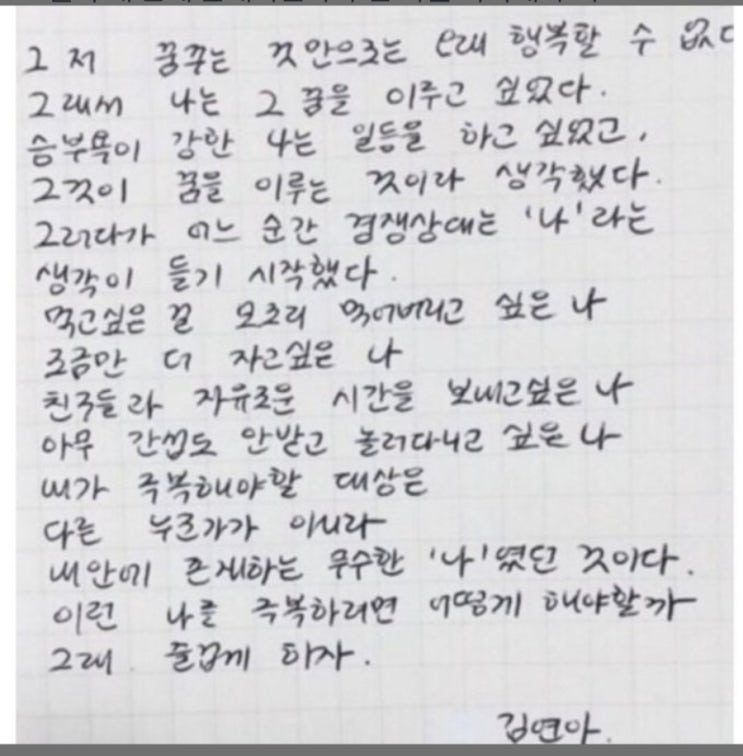 그저 꿈꾸는 것만으로는 오래 행복할 수 없다
그래서 나는 그 꿈을 이루고 싶었다.
승부욕이 강한 나는 일등을 하고 싶었고,
그것이 꿈을 이루는 것이라 생각했다.
그러다가 어느 순간 경쟁상대는 '나'라는
생각이 들기 시작했다.
먹고싶은 걸 모조리 먹어버리고 싶은 나
조금만 더 자고싶은 나
친구들과 자유로운 시간을 보내고싶은 나
아무 간섭도 안받고 놀러다니고 싶은 나
내가 극복해야할 대상은
다른 누군가가 아니라
내 안에 존재하는 무수한 '나'였던 것이다.
이런 나를 극복하려면 어떻게 해야할까
그래. 즐겁게 하자.
김연아.